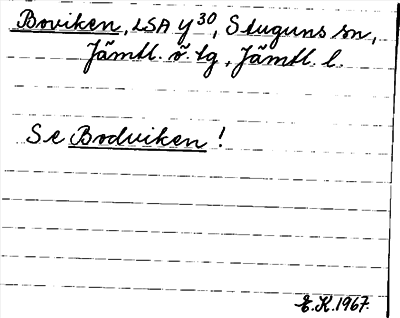 Boviken, LSA y³⁰, Stuguns sn,
Jämtl. ö. tg, Jämtl. l.
Se Bodviken!
E.K. 1967.